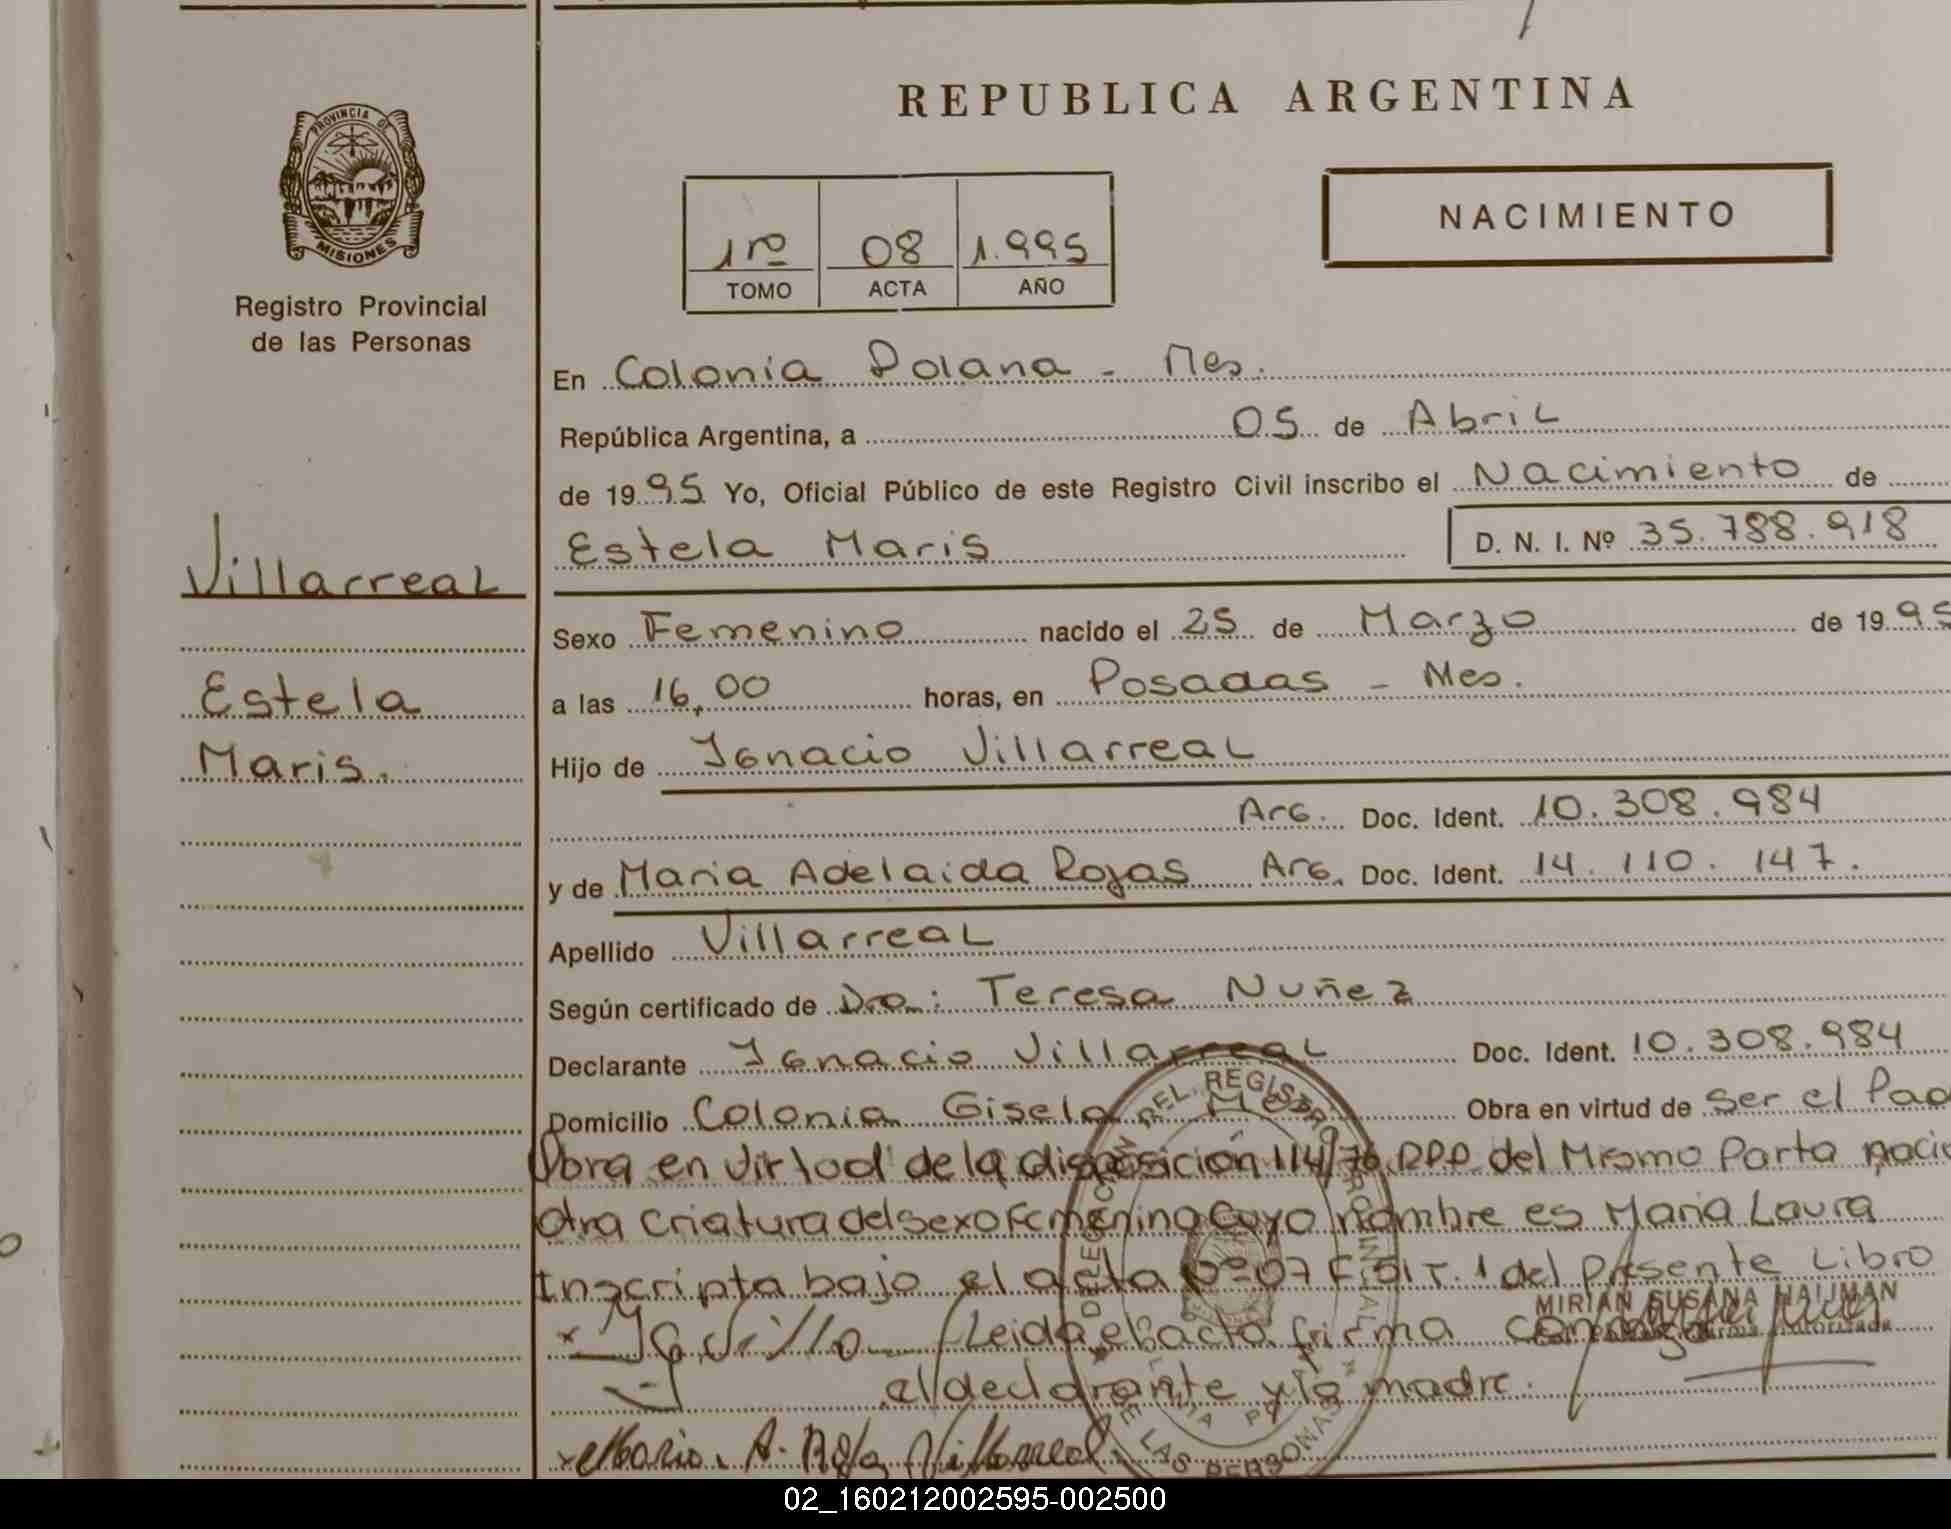 REPUBLICA ARGENTINA
PROVINCIA DE
MISIONES
Registro Provincial
de las Personas
NACIMIENTO
1ro 08 1.995
TOMO ACTA AÑO
En Colonia Polana - Mes.
República Argentina, a 05 de Abril
de 1995 Yo, Oficial Público de este Registro Civil inscribo el Nacimiento de
Estela Maris D. N. I. Nº 35.788.918
Villarreal
Estela
Maris.
Sexo Femenino nacido el 25 de Marzo de 1995
a las 16,00 horas, en Posadas - Mes.
Hijo de Ignacio Villarreal
Arg. Doc. Ident. 10.308.984
y de Maria Adelaida Rojas Arg. Doc. Ident. 14.110.147.
Apellido Villarreal
Según certificado de Dra: Teresa Nuñez
Declarante Ignacio Villarreal Doc. Ident. 10.308.984
Domicilio Colonia Gisela Mes. Obra en virtud de ser el Pad
Obra en virtud de la disposición 114/76 DPP del Mismo Parto nacio
otra criatura del sexo femenino cuyo nombre es Maria Laura
Inscripta bajo el acta Nº 07 F. 01 T. 1 del presente Libro
Leida el acta firma conmigo
MIRIAN SUSANA HAUMAN
el declarante y la madre.
DELEGACION DEL REGISTRO PROVINCIAL
DE LAS PERSONAS
02_160212002595-002500